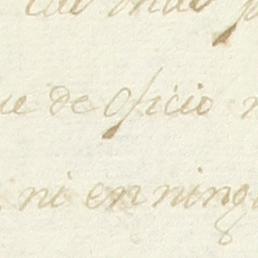 ue de oficio
ni en ning